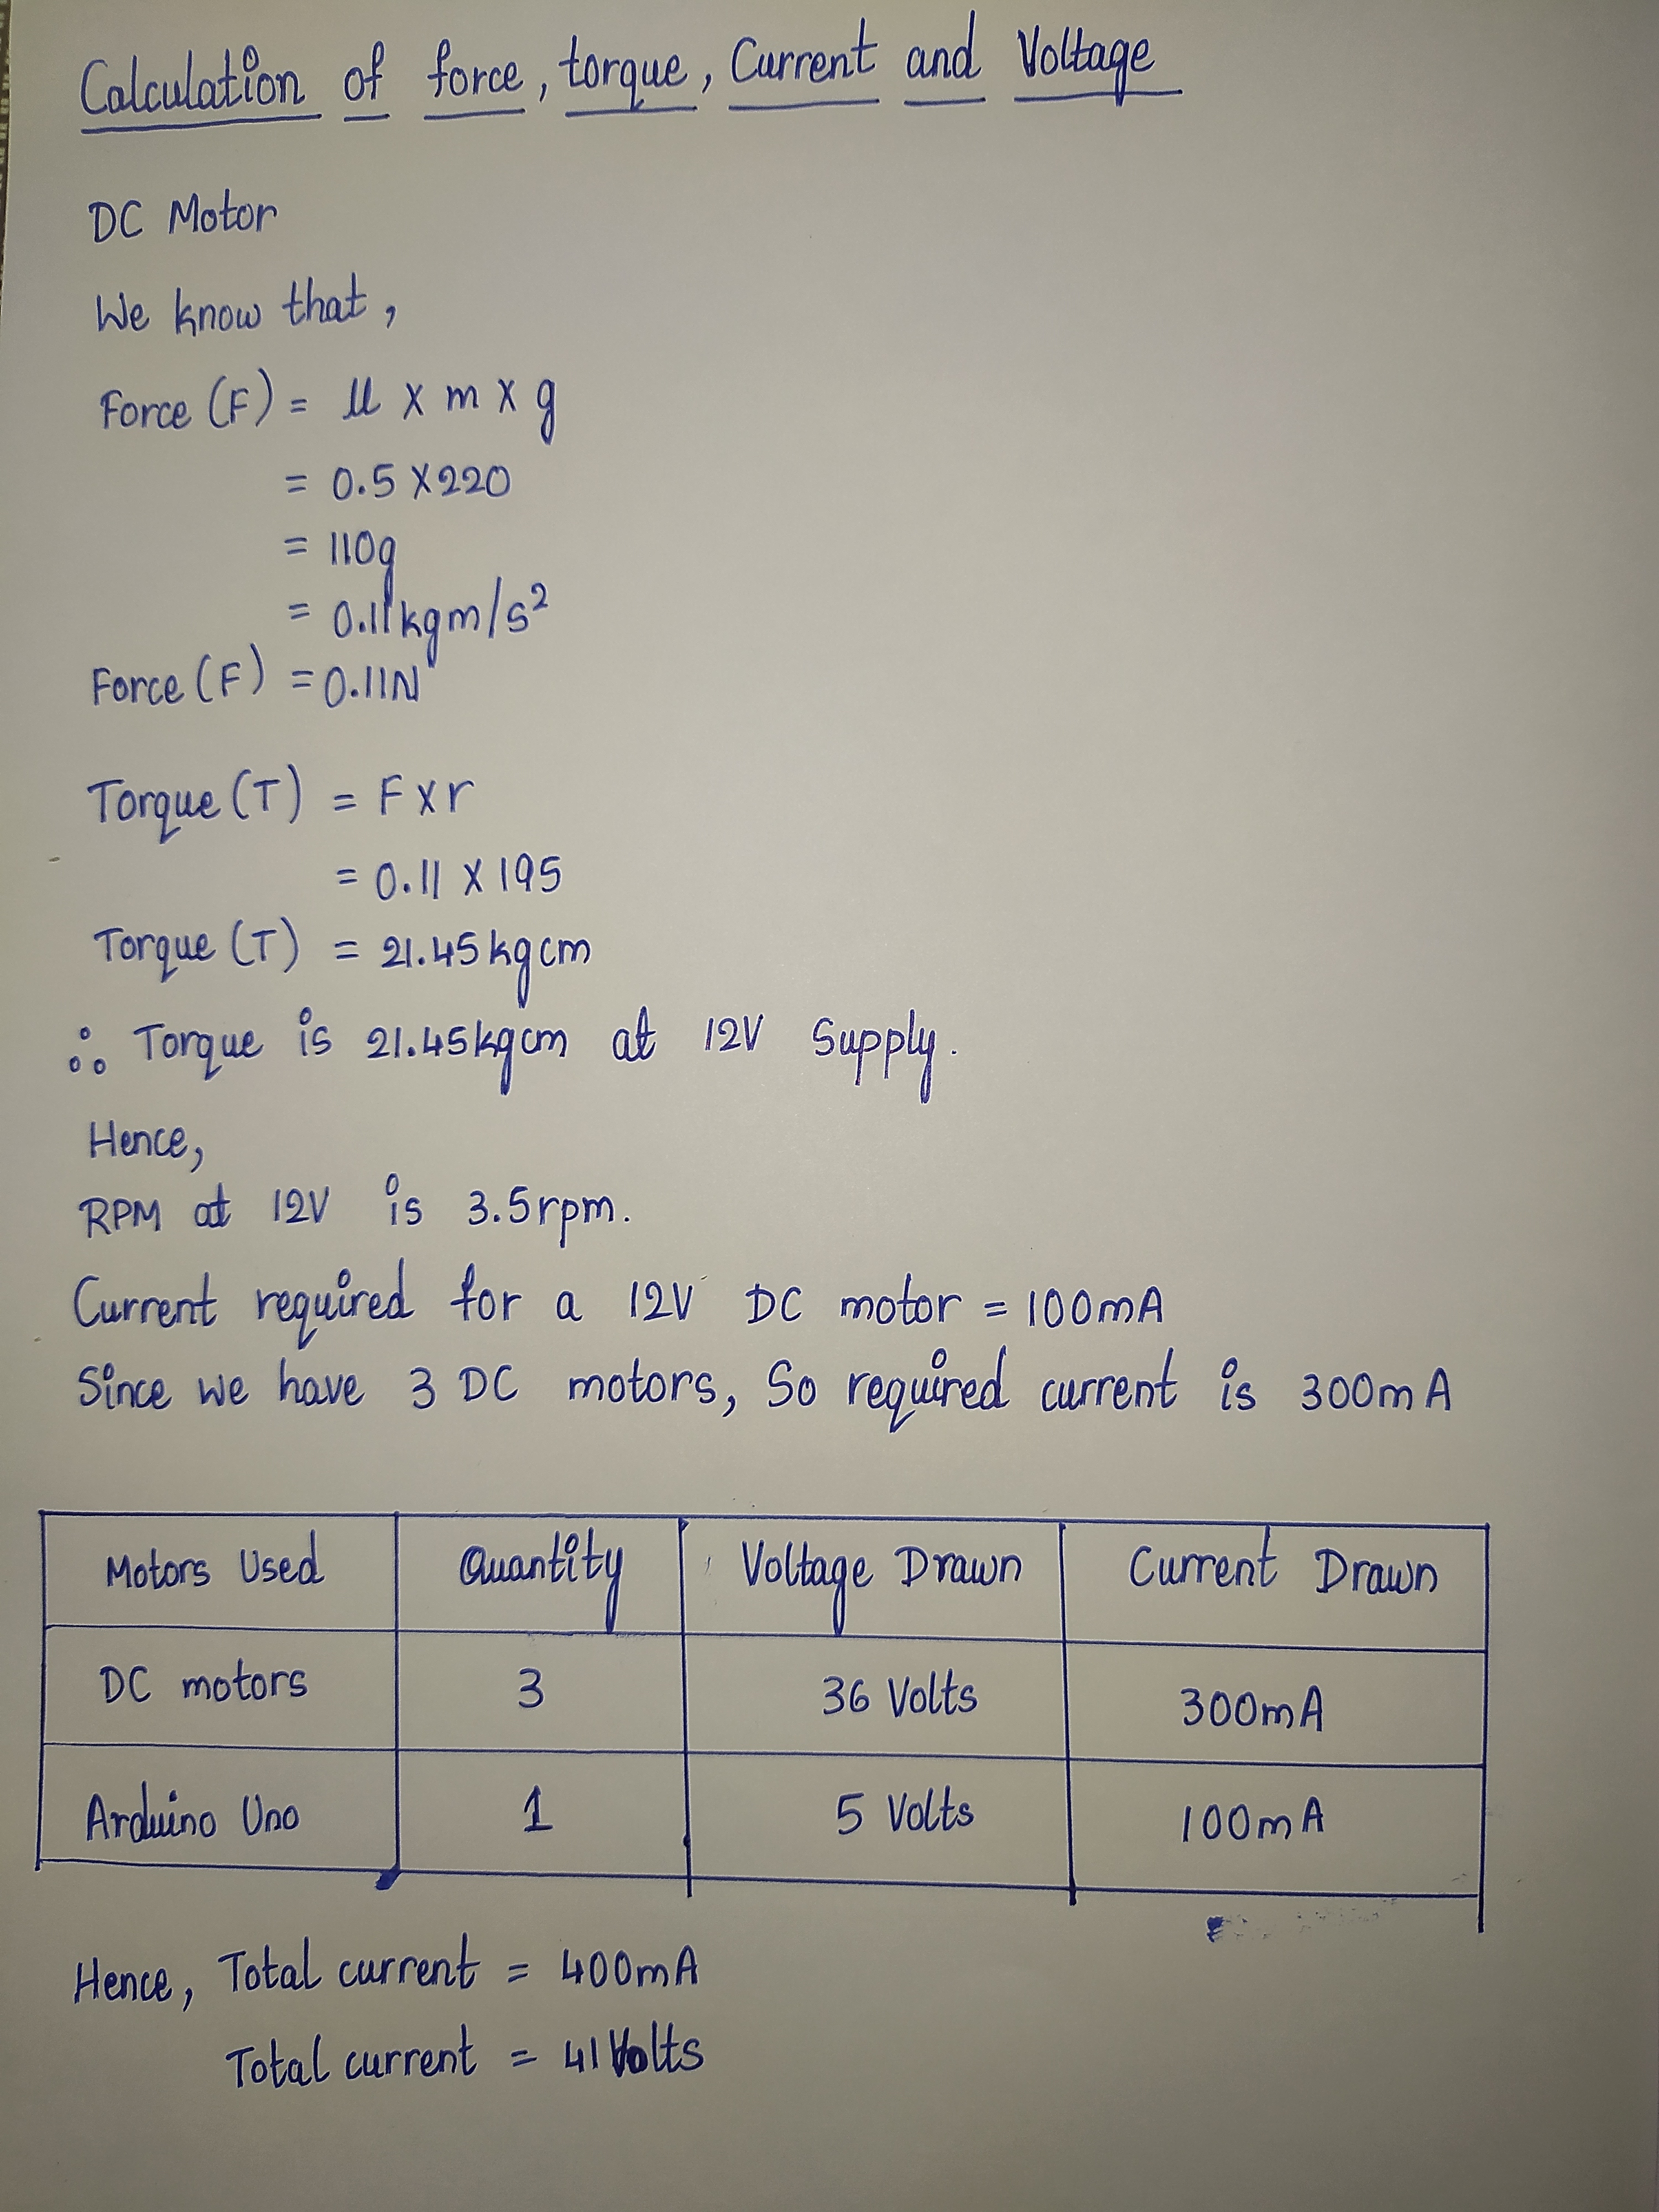 Calculation of force, torque, Current and Voltage
DC Motor
We know that,
Force (F) = μ x m x g
= 0.5 x 220
= 110g
= 0.11kgm/s²
Force (F) = 0.11N
Torque (T) = F x r
= 0.11 x 195
Torque (T) = 21.45kgcm
∴ Torque is 21.45kgcm at 12V Supply.
Hence,
RPM at 12V is 3.5rpm.
Current required for a 12V DC motor = 100mA
Since we have 3 DC motors, So required current is 300mA
Motors Used Quantity Voltage Drawn Current Drawn
DC motors 3 36 Volts 300mA
Arduino Uno 1 5 Volts 100mA
Hence, Total current = 400mA
Total current = 41Volts